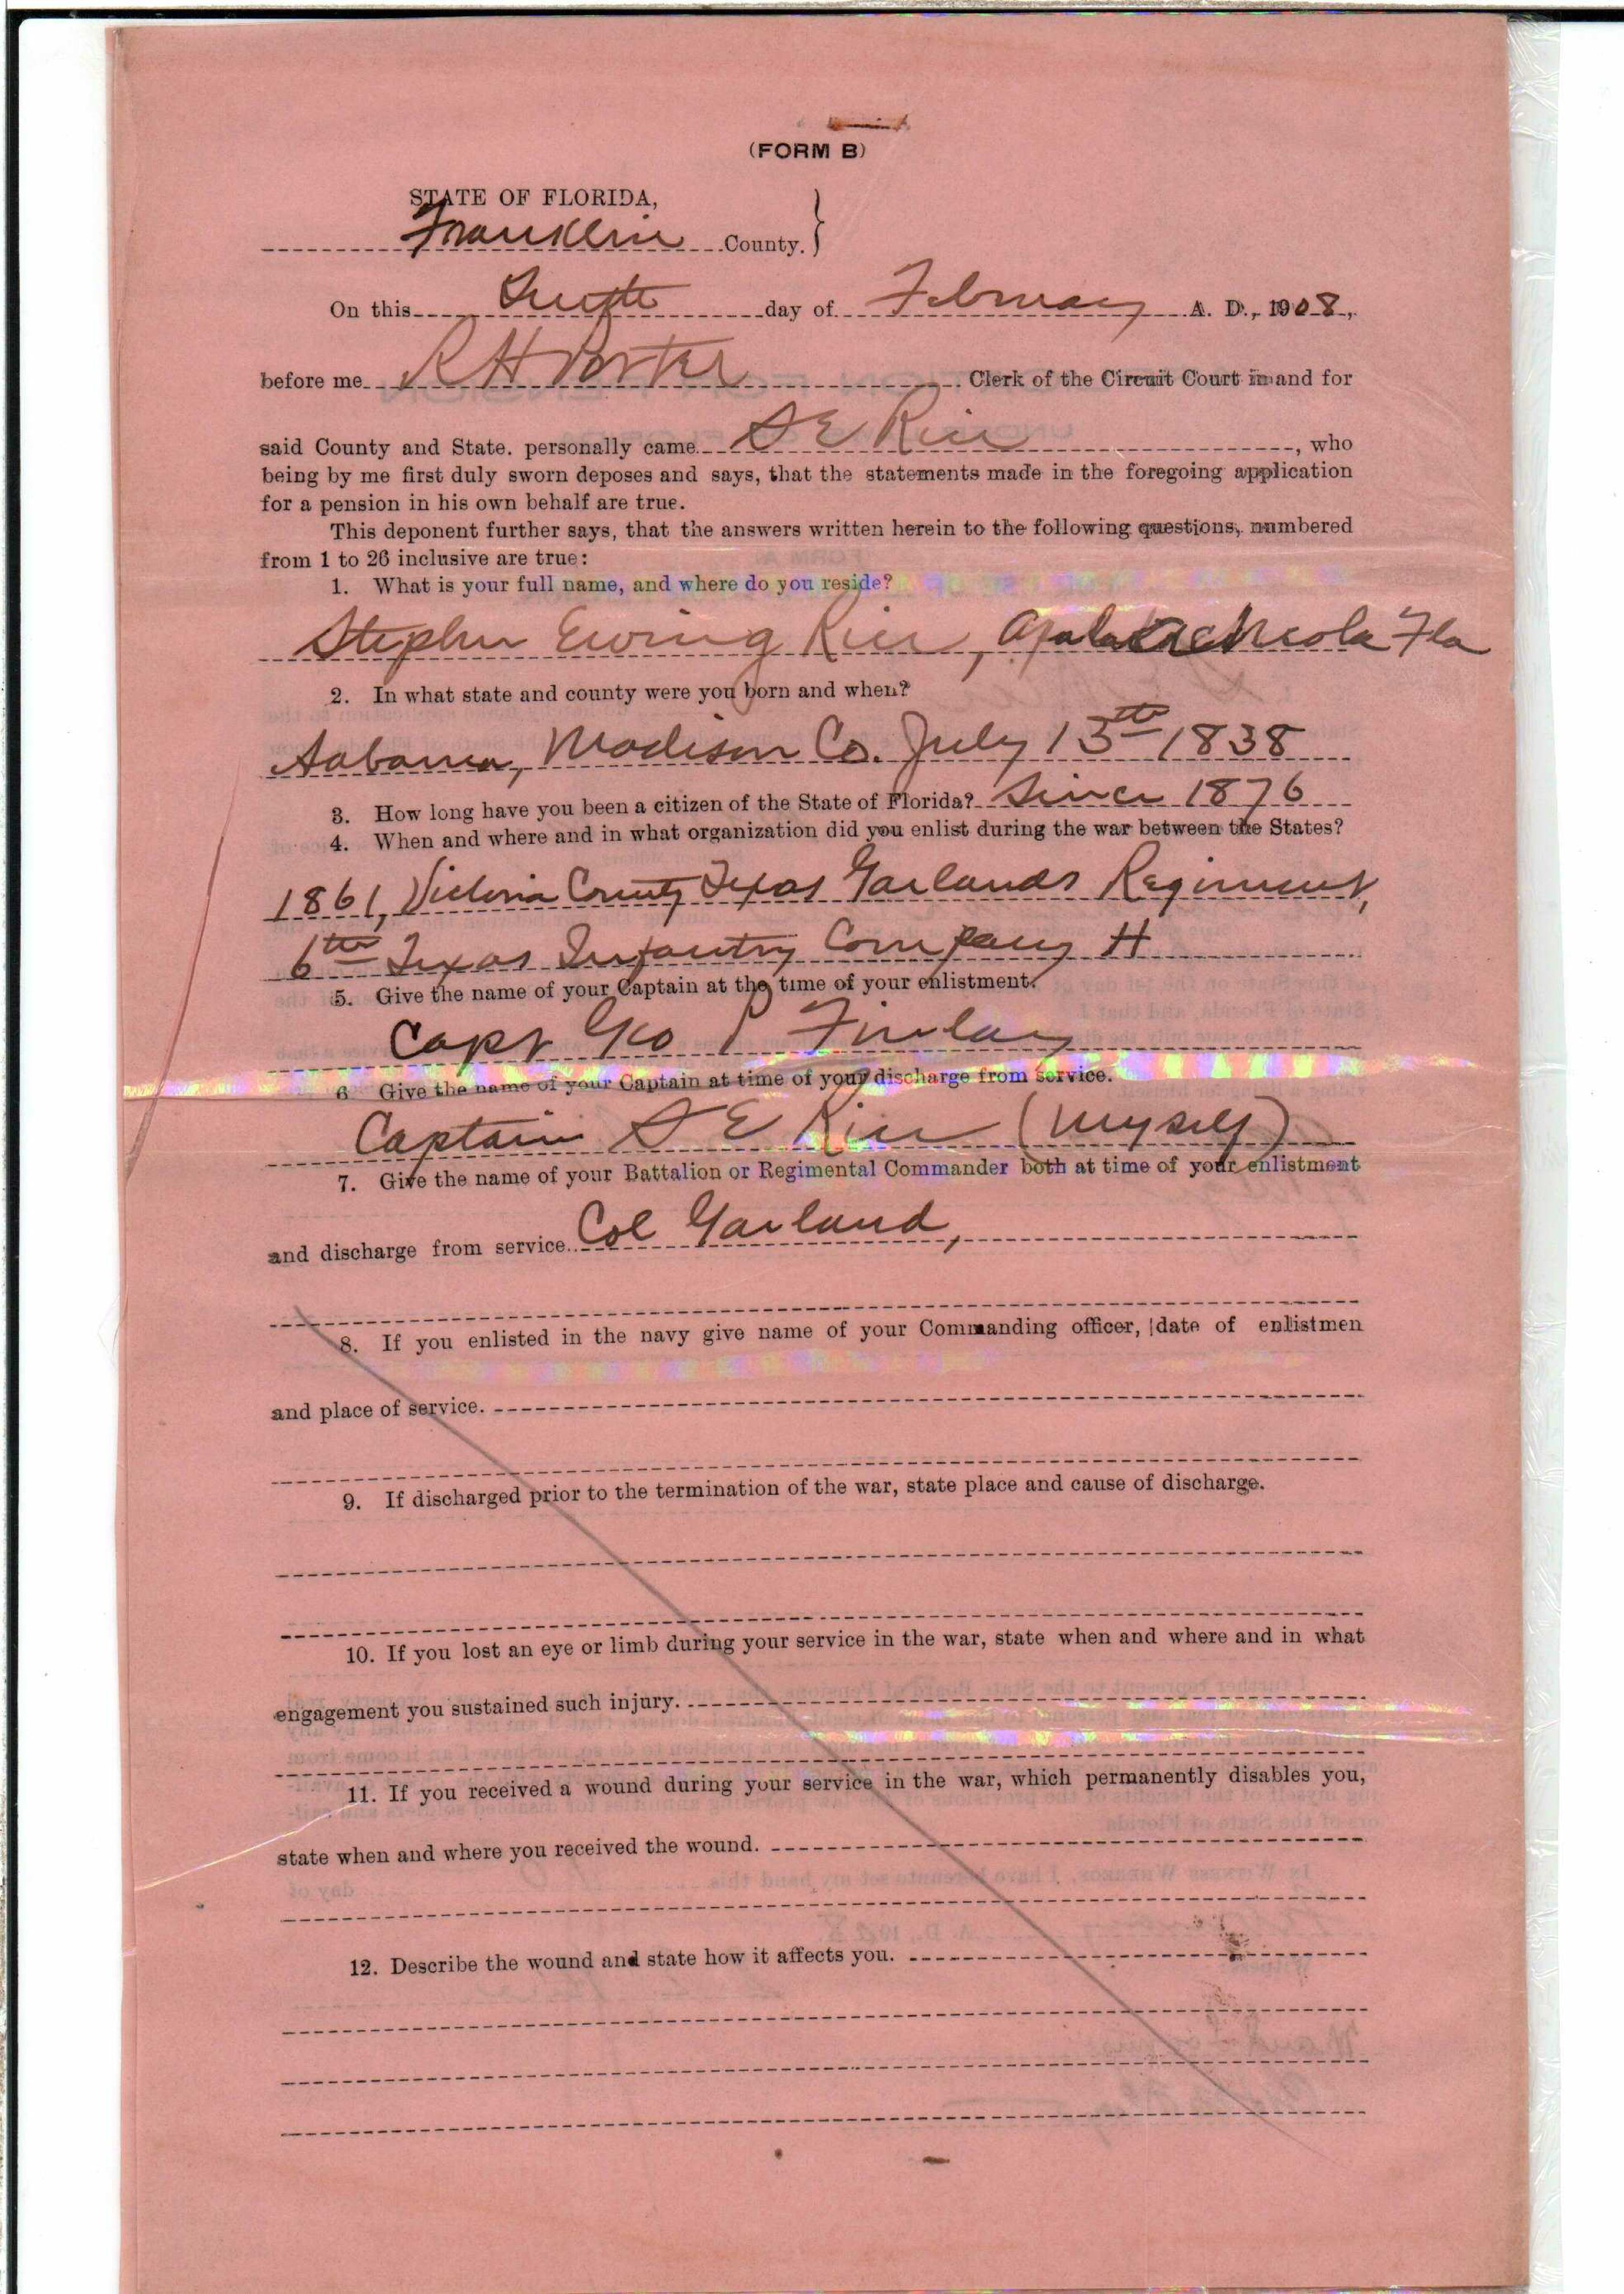 (FORM B)
STATE OF FLORIDA,
Franklin County.
On this day of February A. D., 1908,
before me R H Porter Clerk of the Circuit Court in and for
said County and State. personally came S E Rice, who
being by me first duly sworn deposes and says, that the statements made in the foregoing application
for a pension in his own behalf are true.
This deponent further says, that the answers written herein to the following questions, numbered
from 1 to 26 inclusive are true:
1. What is your full name, and where do you reside?
Stephen Ewing Rice, Apalachicola Fla
2. In what state and county were you born and when?
Aabama, Madison Co. July 13th 1838
3. How long have you been a citizen of the State of Florida? Since 1876
4. When and where and in what organization did you enlist during the war between the States?
1861, Victoria County Texas Garlands Regiment,
6th Texas Infantry Company H
5. Give the name of your Captain at the time of your enlistment.
Capt Geo P Finlay
6 Give the name of your Captain at time of your discharge from service.
Captain S E Rice (myself)
7. Give the name of your Battalion or Regimental Commander both at time of your enlistment
and discharge from service. Col Garland,
8. If you enlisted in the navy give name of your Commanding officer, date of enlistmen
and place of service.
9. If discharged prior to the termination of the war, state place and cause of discharge.
10. If you lost an eye or limb during your service in the war, state when and where and in what
engagement you sustained such injury.
11. If you received a wound during your service in the war, which permanently disables you,
state when and where you received the wound.
12. Describe the wound and state how it affects you.